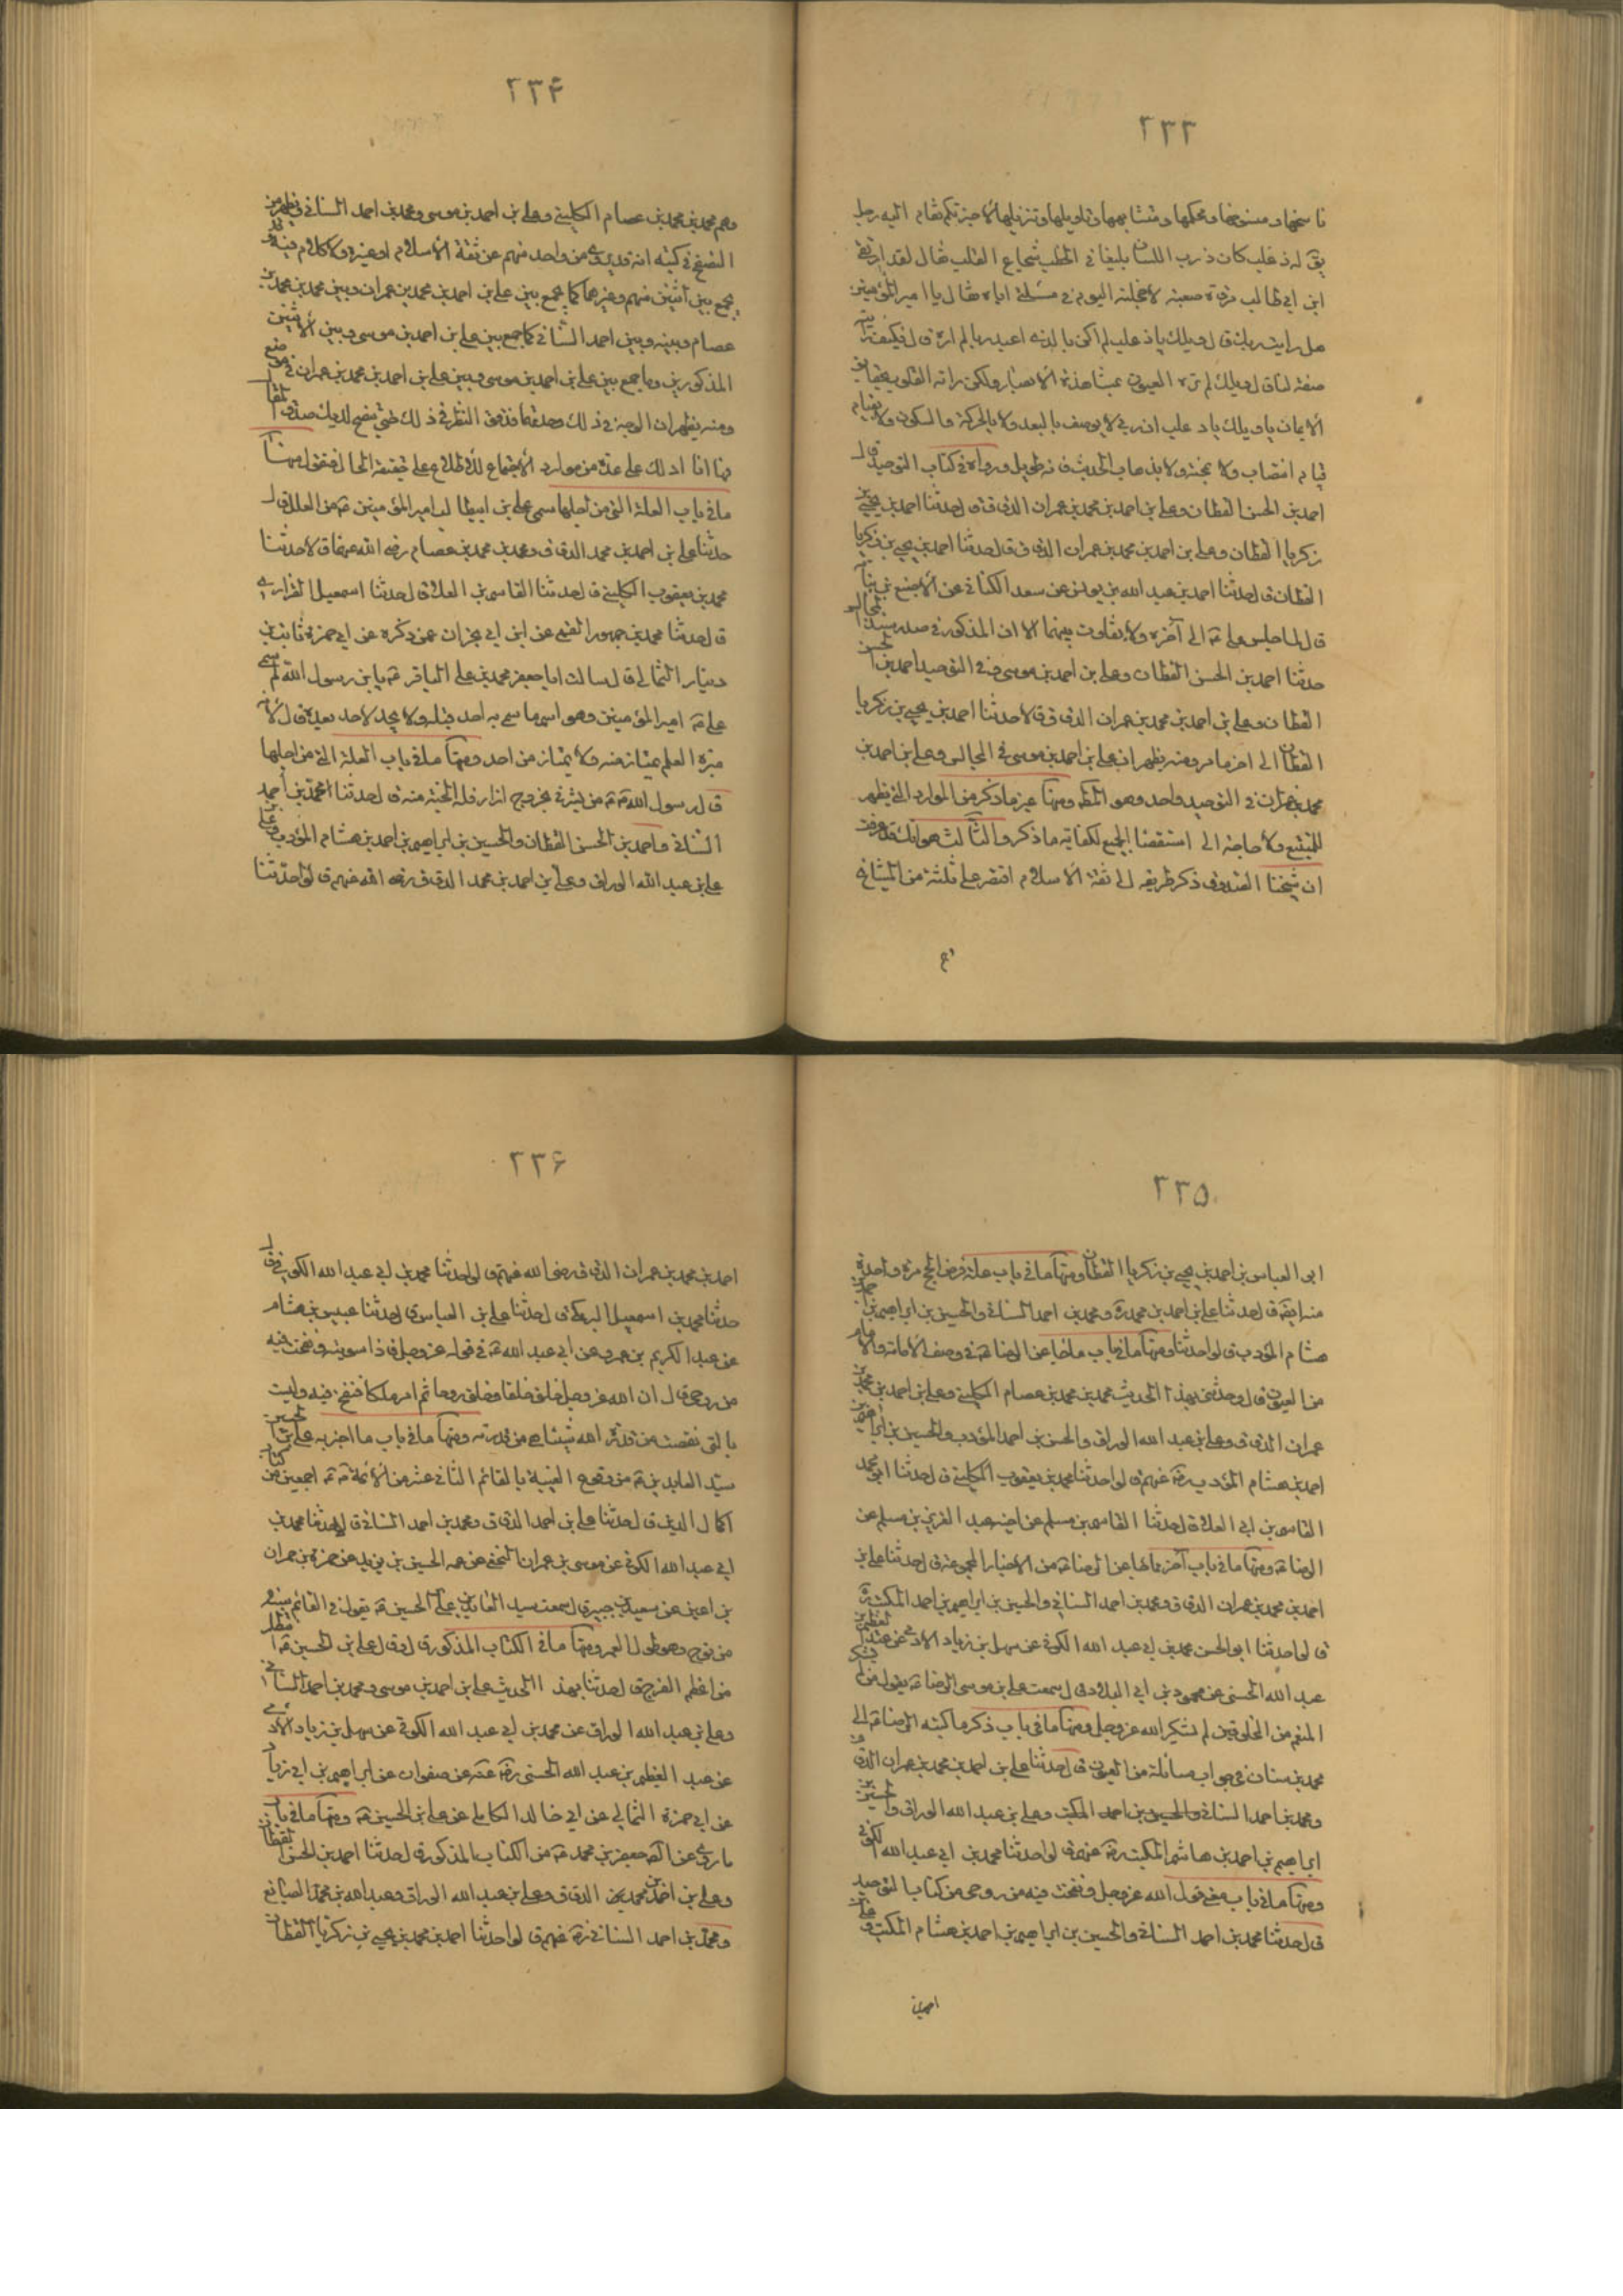 ٢٣٣
ناسخها و منسوخها و محكمها و متشابهها و تاويلها و تنزيلها لاخبرتكم فقام اليه رجل
يق له ذعلب كان ذرب اللسان بليغا فى الخطب شجاع القلب فقال لقد ارتقى
ابن ابى طالب مرقاة صعبة لاخجلنه اليوم فى مسئلتى اياه فقال يا امير المؤمنين
هل رايت ربك قال ويلك يا ذعلب لم اكن بالذى اعبد ربا لم اره قال فكيف رايته
صفه لنا قال ويلك لم تره العيون بمشاهدة الابصار ولكن راته القلوب بحقايق
الايمان يا ويلك يا ذعلب ان ربى لا يوصف بالبعد ولا بالحركة والسكون ولا بقيام
قيام انتصاب ولا بجيئة ولا بذهاب الحديث فانه طويل ورواه فى كتاب التوحيد قال
احمد بن الحسن القطان وعلى بن احمد بن محمد بن عمران الدقاق قال حدثنا احمد بن يحيى بن
زكريا القطان وعلى بن احمد بن محمد بن عمران الدقاق قال حدثنا احمد بن يحيى بن زكريا
القطان قال حدثنا احمد بن عبد الله بن يونس عن سعد الكنانى عن الاصبغ بن نباتة
قال لما جلس على ع الى آخره ولا يتفاوت بينهما الا ان المذكور فى صدر سند المجالس
حدثنا احمد بن الحسن القطان وعلى بن احمد بن موسى وفى التوحيد احمد بن الحسن
القطان وعلى بن احمد بن محمد بن عمران الدقاق قالا حدثنا احمد بن يحيى بن زكريا
القطان الى اخر ما مر ومنه يظهر ان على بن احمد بن موسى فى المجالس وعلى بن احمد بن
محمد بن عمران فى التوحيد واحد وهو المط ومنها غير ما ذكر من الموارد التى يظهر
للمتتبع ولا حاجة الى استقصاء الجميع لكفاية ما ذكر والثالث هو انك قد عرفت
ان شيخنا الصدوق ذكر طريقه الى ثقة الاسلام اقتصر على ثلثة من المشايخ
٢٣٤
وهم محمد بن محمد بن عصام الكلينى وعلى بن احمد بن موسى ومحمد بن احمد السنانى ويظهر من
التصفح فى كتبه انه قد يروى من واحد منهم عن ثقة الاسلام او غيره ولا كلام فيه وقد
يجمع بين اثنين منهم وغيرهما كما يجمع بين على بن احمد بن محمد بن عمران وبين محمد بن محمد بن
عصام وبينه وبين احمد السنانى كما جمع بين على بن احمد بن موسى وبين الاثنين
المذكورين وما جمع بين على بن احمد بن موسى وبين على بن احمد بن محمد بن عمران فى موضع
ومنه يظهر ان الوجه فى ذلك وحدتهما فدقق النظر فى ذلك حتى يتضح لديك صدق المقال
وها انا ادلك على عدة من موارد الاجتماع للاطلاع على حقيقة الحال فنقول منها
ما فى باب العلة التى من اجلها سمى على بن ابيطالب امير المؤمنين ع من العلل قال
حدثنا على بن احمد بن محمد الدقاق ومحمد بن محمد بن عصام رضى الله عنهما قالا حدثنا
محمد بن يعقوب الكلينى قال حدثنا القاسم بن العلا قال حدثنا اسمعيل الفزارى
قال حدثنا محمد بن جمهور العمى عن ابن ابى نجران عمن ذكره عن ابى حمزة ثابت بن
دينار الثمالى قال سالت ابا جعفر محمد بن على الباقر ع يا بن رسول الله لم سمى
على ع امير المؤمنين وهو اسم ما سمى به احد قبله ولا يحل لاحد بعده قال لانه
ميرة العلم يمتاز منه ولا يمتاز من احد ومنها ما فى باب العلة التى من اجلها
قال رسول الله ص من بشرنى بخروج اذار فله الجنة منه قال حدثنا محمد بن احمد
السنانى واحمد بن الحسن القطان والحسين بن ابراهيم بن احمد بن هشام المؤدب وعلى بن
على بن عبد الله الوراق وعلى بن احمد بن محمد الدقاق رضى الله عنهم قالوا حدثنا
٢٣٥
ابو العباس بن احمد بن يحيى بن زكريا القطان ومنها ما فى باب علة فرض الحج مرة واحدة
منه ايضا قال حدثنا على بن احمد بن محمد ره ومحمد بن احمد السنانى والحسين بن ابراهيم بن احمد بن
هشام المؤدب قالوا حدثنا ومنها ما فى باب ما جاء عن الرضا ع فى وصف الامامة والامام
من العيون قال وحدثنى بهذا الحديث محمد بن محمد بن عصام الكلينى وعلى بن احمد بن محمد بن
عمران الدقاق وعلى بن عبد الله الوراق والحسن بن احمد المؤدب والحسين بن ابراهيم بن
احمد بن هشام المؤدب رض عنهم قالوا حدثنا محمد بن يعقوب الكلينى قال حدثنا ابو محمد
القاسم بن ابى العلا قال حدثنا القاسم بن مسلم عن اخيه عبد العزيز بن مسلم عن
الرضا ع ومنها ما فى باب آخر مما جاء عن الرضا ع من الاخبار المجموعة قال حدثنا على بن
احمد بن محمد بن عمران الدقاق ومحمد بن احمد السنانى والحسين بن ابراهيم بن احمد المكتب ره
قالوا حدثنا ابو الحسن محمد بن ابى عبد الله الكوفى عن سهل بن زياد الادمى عن عبد العظيم بن
عبد الله الحسنى عن محمود بن ابى البلاد قال سمعت على بن موسى الرضا ع يقول من لم يشكر
المنعم من المخلوقين لم يشكر الله عز وجل ومنها ما فى باب ذكر ما كتبه الرضا ع الى
محمد بن سنان فى جواب مسائله من العيون قال حدثنا على بن احمد بن محمد بن عمران الدقاق
ومحمد بن احمد السنانى والحسين بن احمد المكتب وعلى بن عبد الله الوراق والحسين بن
ابراهيم بن احمد بن هاشم المكتب رض عنهم قالوا حدثنا محمد بن ابى عبد الله الكوفى
ومنها ما فى باب معنى قول الله عز وجل ونفخت فيه من روحى من كتاب التوحيد
قال حدثنا محمد بن احمد السنانى والحسين بن ابراهيم بن احمد بن هشام المكتب وعلى بن
احمد بن
٢٣٦
احمد بن محمد بن عمران الدقاق رضى الله عنهم قالوا حدثنا محمد بن ابى عبد الله الكوفى قال
حدثنا محمد بن اسمعيل البرمكى قال حدثنا على بن العباس قال حدثنا عبيس بن هشام
عن عبد الكريم بن عمرو عن ابى عبد الله ع فى قوله عز وجل فاذا سويته ونفخت فيه
من روحى قال ان الله عز وجل خلق خلقا وخلق روحا ثم امر ملكا فنفخ فيه وليست
بالتى نقصت من قدرة الله شيئا هى من قدرته ومنها ما فى باب ما اخبر به على بن الحسين
سيد العابدين ع من وقوع الغيبة بالقائم الثانى عشر من الائمة ص ع اجمعين من كتاب
اكمال الدين قال حدثنا على بن احمد الدقاق ومحمد بن احمد السنانى قال حدثنا محمد بن
ابى عبد الله الكوفى عن موسى بن عمران النخعى عن عمه الحسين بن يزيد عن حمزة بن حمران
بن اعين عن سعيد بن جبير قال سمعت سيد العابدين على بن الحسين ع يقول فى القائم سنة
من نوح وهو طول العمر ومنها ما فى الكتاب المذكور قال وقال على بن الحسين ع انتظار
من اعظم الفرج قال حدثنا بهذا الحديث على بن احمد بن موسى ومحمد بن احمد السنانى
وعلى بن عبد الله الوراق عن محمد بن ابى عبد الله الكوفى عن سهل بن زياد الادمى
عن عبد العظيم بن عبد الله الحسنى رض عنه عن صفوان عن ابراهيم بن ابى زياد
عن ابى حمزة الثمالى عن ابى خالد الكابلى عن على بن الحسين ع ومنها ما فى باب
ما روى عن الص جعفر بن محمد ع من الكتاب المذكور قال حدثنا احمد بن الحسن القطان
وعلى بن احمد بن محمد الدقاق وعلى بن عبد الله الوراق وعبد الله بن محمد الصايغ
ومحمد بن احمد السنانى رض عنهم قالوا حدثنا احمد بن محمد بن يحيى بن زكريا القطان